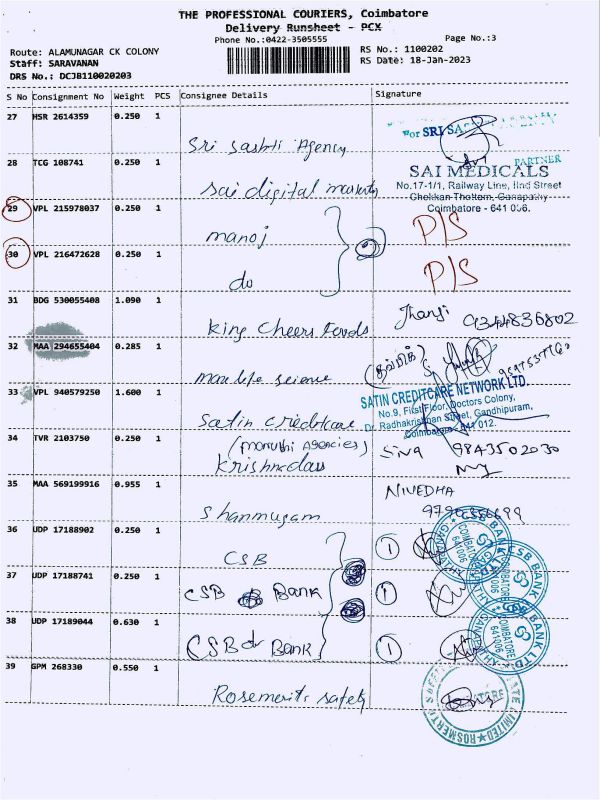 THE PROFESSIONAL COURIERS, Coimbatore
Delivery Runsheet - PCX
Phone No.:0422-3505555
Page No.:3
Route: ALAMUNAGAR CK COLONY
RS No.: 1100202
Staff: SARAVANAN
RS Date: 18-Jan-2023
DRS No.: DCJB110020203
S No Consignment No Weight PCS Consignee Details Signature
27 HSR 2614359 0.250 1
Sri Sashti Agency
For SRI SA
PARTNER
28 TCG 108741 0.250 1
Sai digital
SAI MEDICALS
No.17-1/1, Railway Line, IInd Street
Chekkan Thottam, Ganapathy
Coimbatore - 641 006.
29 VPL 215978037 0.250 1
manoj
P/S
30 VPL 216472628 0.250 1
do
P/S
31 BDG 530055408 1.090 1
King Cheers foods
9344836802
32 MAA 294655404 0.285 1
life science
33 VPL 940579250 1.600 1
Satin Creditcare
SATIN CREDITCARE NETWORK LTD.
No.9, First Floor, Doctors Colony,
Dr. Radhakrishnan Street, Gandhipuram,
Coimbatore - 641 012.
34 TVR 2103750 0.250 1
(maruthi Agencies)
Krishnadass
Siva 9843502030
35 MAA 569199916 0.955 1
Shanmugam
NIVEDHA
36 UDP 17188902 0.250 1
CSB
1
CSB BANK LTD
COIMBATORE
641006
37 UDP 17188741 0.250 1
CSB Bank
1
CSB BANK LTD
38 UDP 17189044 0.630 1
CSB Bank
1
CSB BANK LTD
COIMBATORE
641006
39 GPM 268330 0.550 1
Rosemerits safety